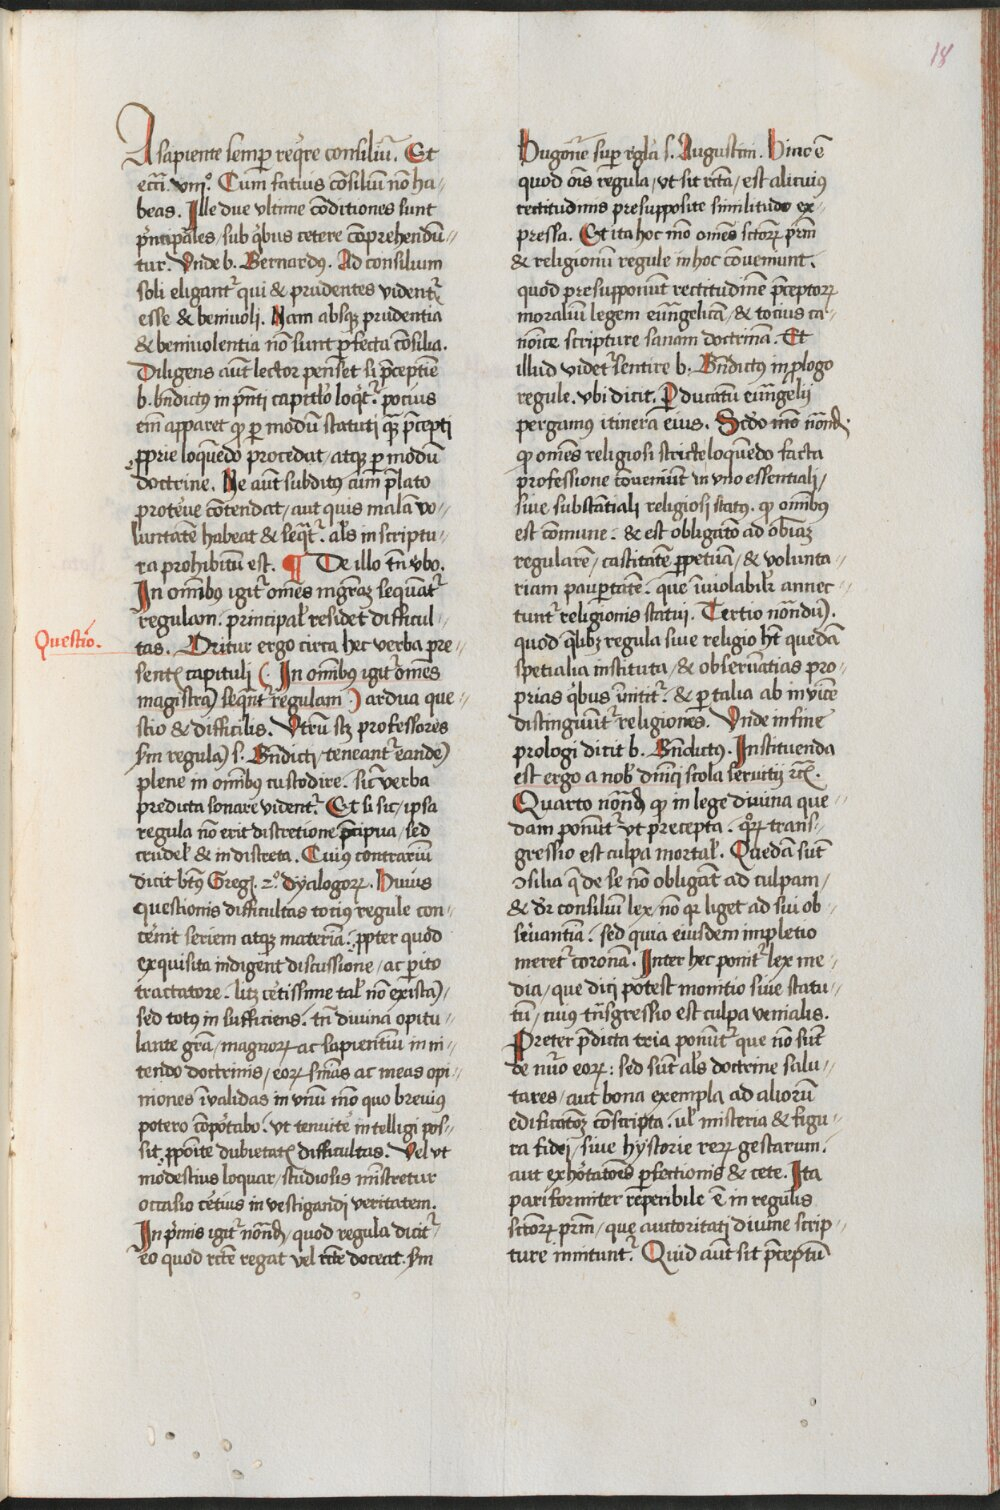 18
A sapiente semꝑ reqͥre consiliū. Et
ecci. viijͦ. Cum fatuis cōsiliū nō ha-
beas. Ille due vltime cōditiones sunt
pͥncipales / sub qͥbus cetere cōprehendū-
tur. Vnde b. Bernardꝰ. Ad consilium
soli eligant᷑ qui & prudentes vident᷑
esse & beniuoli. Nam absqꝫ prudentia
& beniuolentia nō sunt ꝑfecta cōsilia.
Diligens aut̄ lector penset si p̄ceptiue
b. bn̄dictꝰ in p̄nti capitl̓o loqͥt᷑. pocius
em̄ apparet ꝙ ꝑ modū statuti qꝫ p̄cepti
ꝓprie loquendo procedat / atqꝫ ꝑ modū
doctrine. Ne aut̄ subditꝰ cum p̄lato
proterue cōtendat / aut quis malā vo-
luntatē habeat & seqͥt᷑. al̓s in scriptu-
ra prohibitum est. ¶ De illo tn̄ v̓bo.
In om̄ibꝰ igit᷑ om̄es mgr̄az sequāt᷑
regulam. principal̓ residet difficul-
Questio.
tas. Oritur ergo circa hec verba pre-
sentꝭ capituli (. In om̄ibꝰ igit᷑ om̄es
magistrā seqͣnt᷑ regulam .) ardua que-
stio & difficilis. Vtrū scꝫ professores
sm̄ regulā s. Bn̄dicti / teneant᷑ eandē
plene in om̄ibꝰ custodire. sic̄ verba
predicta sonare vident᷑. Et si sic / ipsa
regula nō erit discretione p̄cipua / sed
crudel̓ & indiscreta. Cuius contrariū
dicit bt̄ꝰ Greg. 2ͦ. dyalogoꝝ. Huius
questionis difficultas totiꝰ regule con-
cernit seriem atqꝫ materiā. ꝓpter quod
exquisita indigent discussione / ac ꝑito
tractatore. licꝫ certissime tal̓ nō existā /
sed totꝰ insufficiens. tn̄ diuina opitu-
lante gr̄a / magnoꝝ ac sapientiū inni-
tendo doctrinis / eoꝝ sn̄ias ac meas opi-
niones īualidas in vnū mō quo breuius
potero cōportabo. vt tenuiter intelligi pos-
sit ꝓposite dubietatꝭ difficultas. Vel vt
modestius loquar / studiosis mīstretur
occasio certius inuestigandi veritatem.
In pͥmis igit᷑ nōnd̄ / quod regula dicit᷑
eo quod rc̄te regat vel rc̄te doceat. sm̄
Hugonē suꝑ rgl̄a s. Augustini. Hinc ē
quod oīs regula / vt sit rc̄ta / est alicuiꝰ
rectitudinis presupposite similitudo ex-
pressa. Et ita hoc mō om̄es sctōꝝ prm̄
& religionū regule in hoc conueniunt.
quod presupponūt rectitudinē p̄ceptoꝝ
moraliū legem euāgelicā / & totius ca-
nonice scripture sanam doctrinā. Et
illud videt᷑ sentire b. Bn̄dictꝰ in ꝓlogo
regule. vbi dicit. Per ducatū euāgelij
pergamꝰ itinera eius. Scdo mō nōnd̄.
ꝙ om̄es religiosi stricte loquendo facta
professione conueniūt in vno essentiali /
siue substātiali religiosi statꝰ. ꝙ om̄ibꝰ
est comune. & est obligatō ad obiaꝫ
regularē / castitatē ꝑpetuā / & volunta-
riam pauꝑtatē. que īuiolabilr̄ annec-
tunt᷑ religionis statui. Tertio nōndū.
quod qͣlibꝫ regula siue religio hꝫ quedā
spetialia instituta / & obseruātias pro-
prias qͥbus īnitit᷑. & ꝑ talia ab inuicē
distinguūt᷑ religiones. Vnde in fine
prologi dicit b. Bn̄dictꝰ. Instituenda
est ergo a nob̓ dn̄ici scola seruitij rc̄.
Quarto nōnd̄ ꝙ in lege diuina que-
dam ponūt᷑ vt precepta. qͦꝝ trans-
gressio est culpa mortal̓. Quedā sūt
ꝯsilia q̄ de se nō obligāt ad culpam /
& dr̄ consiliū lex / nō qꝛ liget ad sui ob-
seruantiā. sed quia eiusdem impletio
meret᷑ coronā. Inter hec ponit᷑ lex me-
dia / que dici potest monitio siue statu-
tū / cuiꝰ trāsgressio est culpa venialis.
Preter p̄dicta tria ponūt᷑ que nō sūt
de nūo eoꝝ: sed sūt al̓s doctrine salu-
tares / aut bona exempla ad aliorū
edificatōꝫ cōscripta. vl̓ misteria & figu-
ra fidei / siue hystorie reꝝ gestarum.
aut exhortatōes ꝑfectionis & cete. Ita
pariformiter reꝑibile ē in regulis
sctōꝝ prm̄ / que auctoritati diuine scrip-
ture innitunt᷑. Quid aut̄ sit p̄ceptū